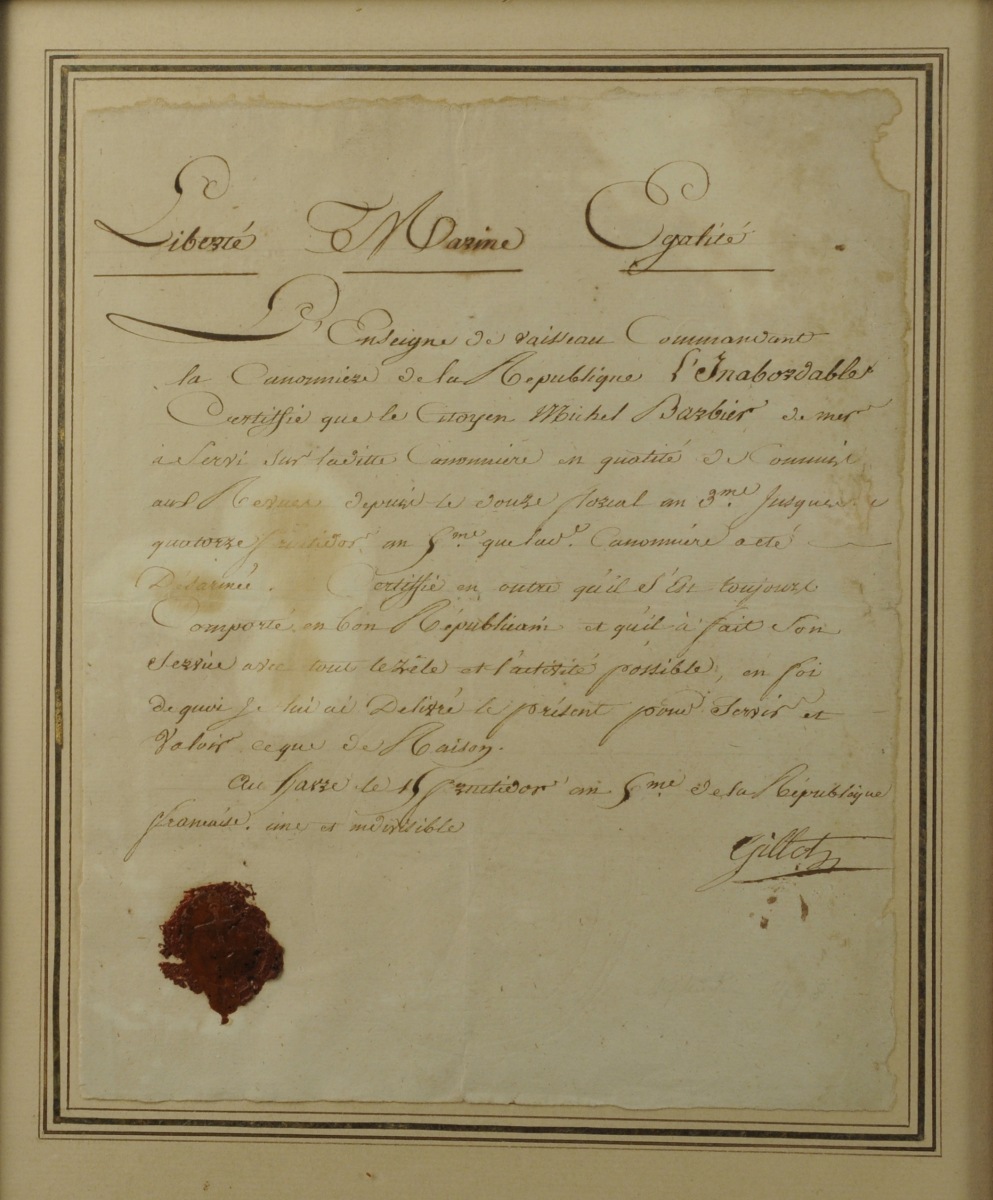 Liberté Marine Egalité
L'Enseigne de vaisseau Commandant
la Canonniere de la Republique L'Inabordable
Certiffie que le Citoyen Michel Barbier de mer
a servi sur laditte Canonniere en qualité de Commis
aux Revues depuis le douze floreal an 3.me jusques
quatorze fructidor an 5.me que lad.e Canonniére a eté
Désarmée. Certiffie en outre qu'il s'Est toujours
Comporté en bon Républicain et qu'il à fait son
service avec tout le zêle et l'activité possible, en foi
de quoi je lui ai Délivré le présent pour servir et
valoir ce que de Raison.
Au Havre le 15 fructidor an 5.me de la République
française. une et indivisible
Gillot